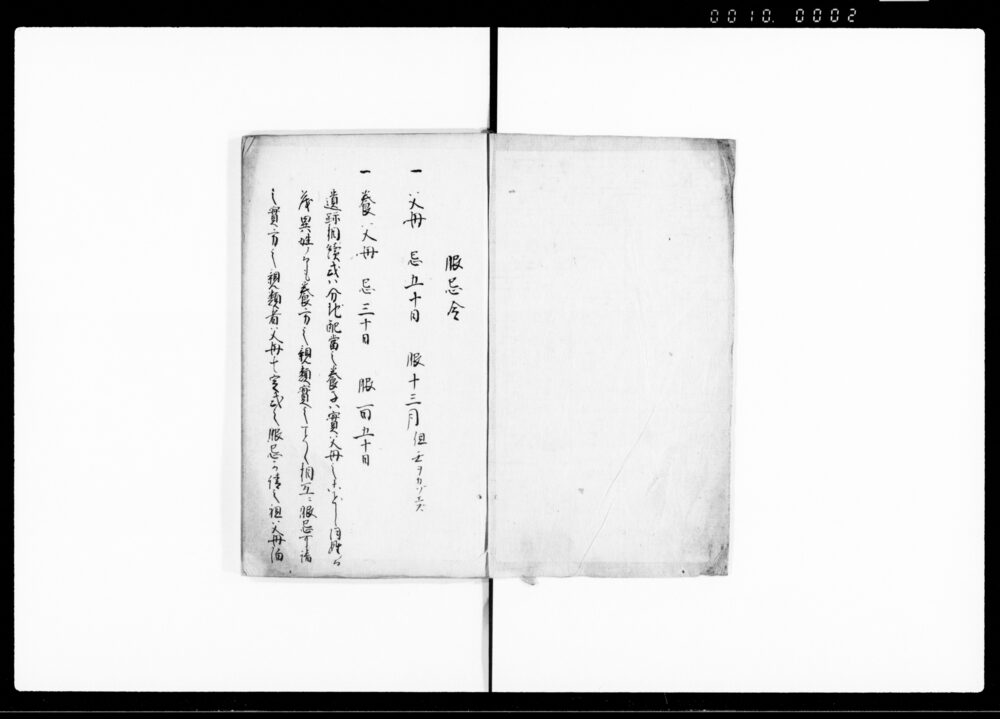 0010. 0002
服忌令
一 父母 忌五十日 服十三月 但閏月ヲカゾエズ
一 養父母 忌三十日 服百五十日
遺跡相續或ハ分地配當之養子ハ實父母之ことし同姓にても
異姓にても養方之親類實之ことく相互ニ服忌可請
之實方之親類者父母者定式之服忌可請之祖父母伯